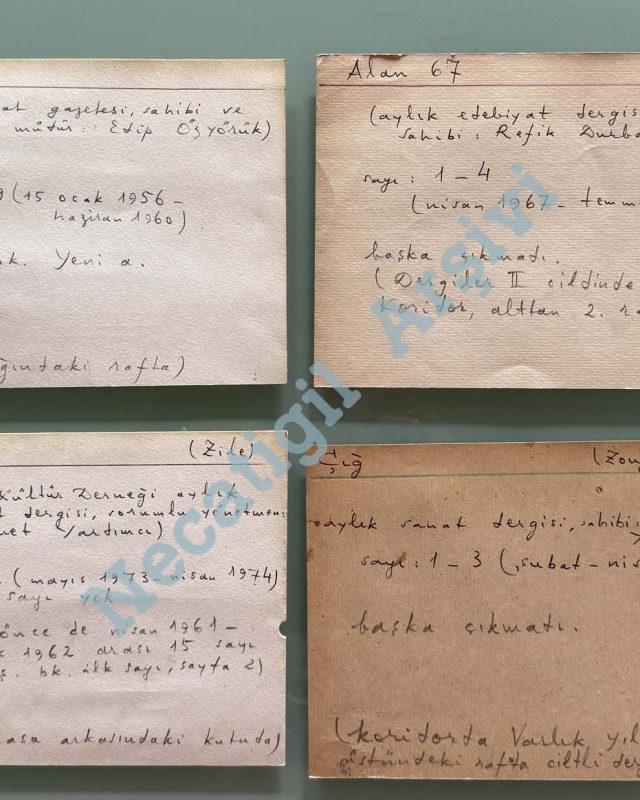 at gazetesi, sahibi ve
müdür: Edip Özyörük)
(15 ocak 1956 –
haziran 1960)
bk. Yeni a.
ğındaki rafta)
Alan 67
(aylık edebiyat dergis
sahibi: Refik Durba
sayı: 1 – 4
(nisan 1967 – temm
başka çıkmadı.
(Dergiler II cildinde
Koridor, alttan 2. ra
(Zile)
Kültür Derneği aylık
dergisi, sorumlu yönetmen:
met Yardımcı)
(mayıs 1973 – nisan 1974)
sayı yok
önce de nisan 1961 –
1962 arası 15 sayı
ş. bk. ilk sayı, sayfa 2)
asa arkasındaki kutuda)
Çığ
(Zon
aylık sanat dergisi, sahibi:
sayı: 1 – 3 (şubat – nis
başka çıkmadı.
(koridorda Varlık yıl
üstündeki rafta ciltli der
Necatigil Arşivi